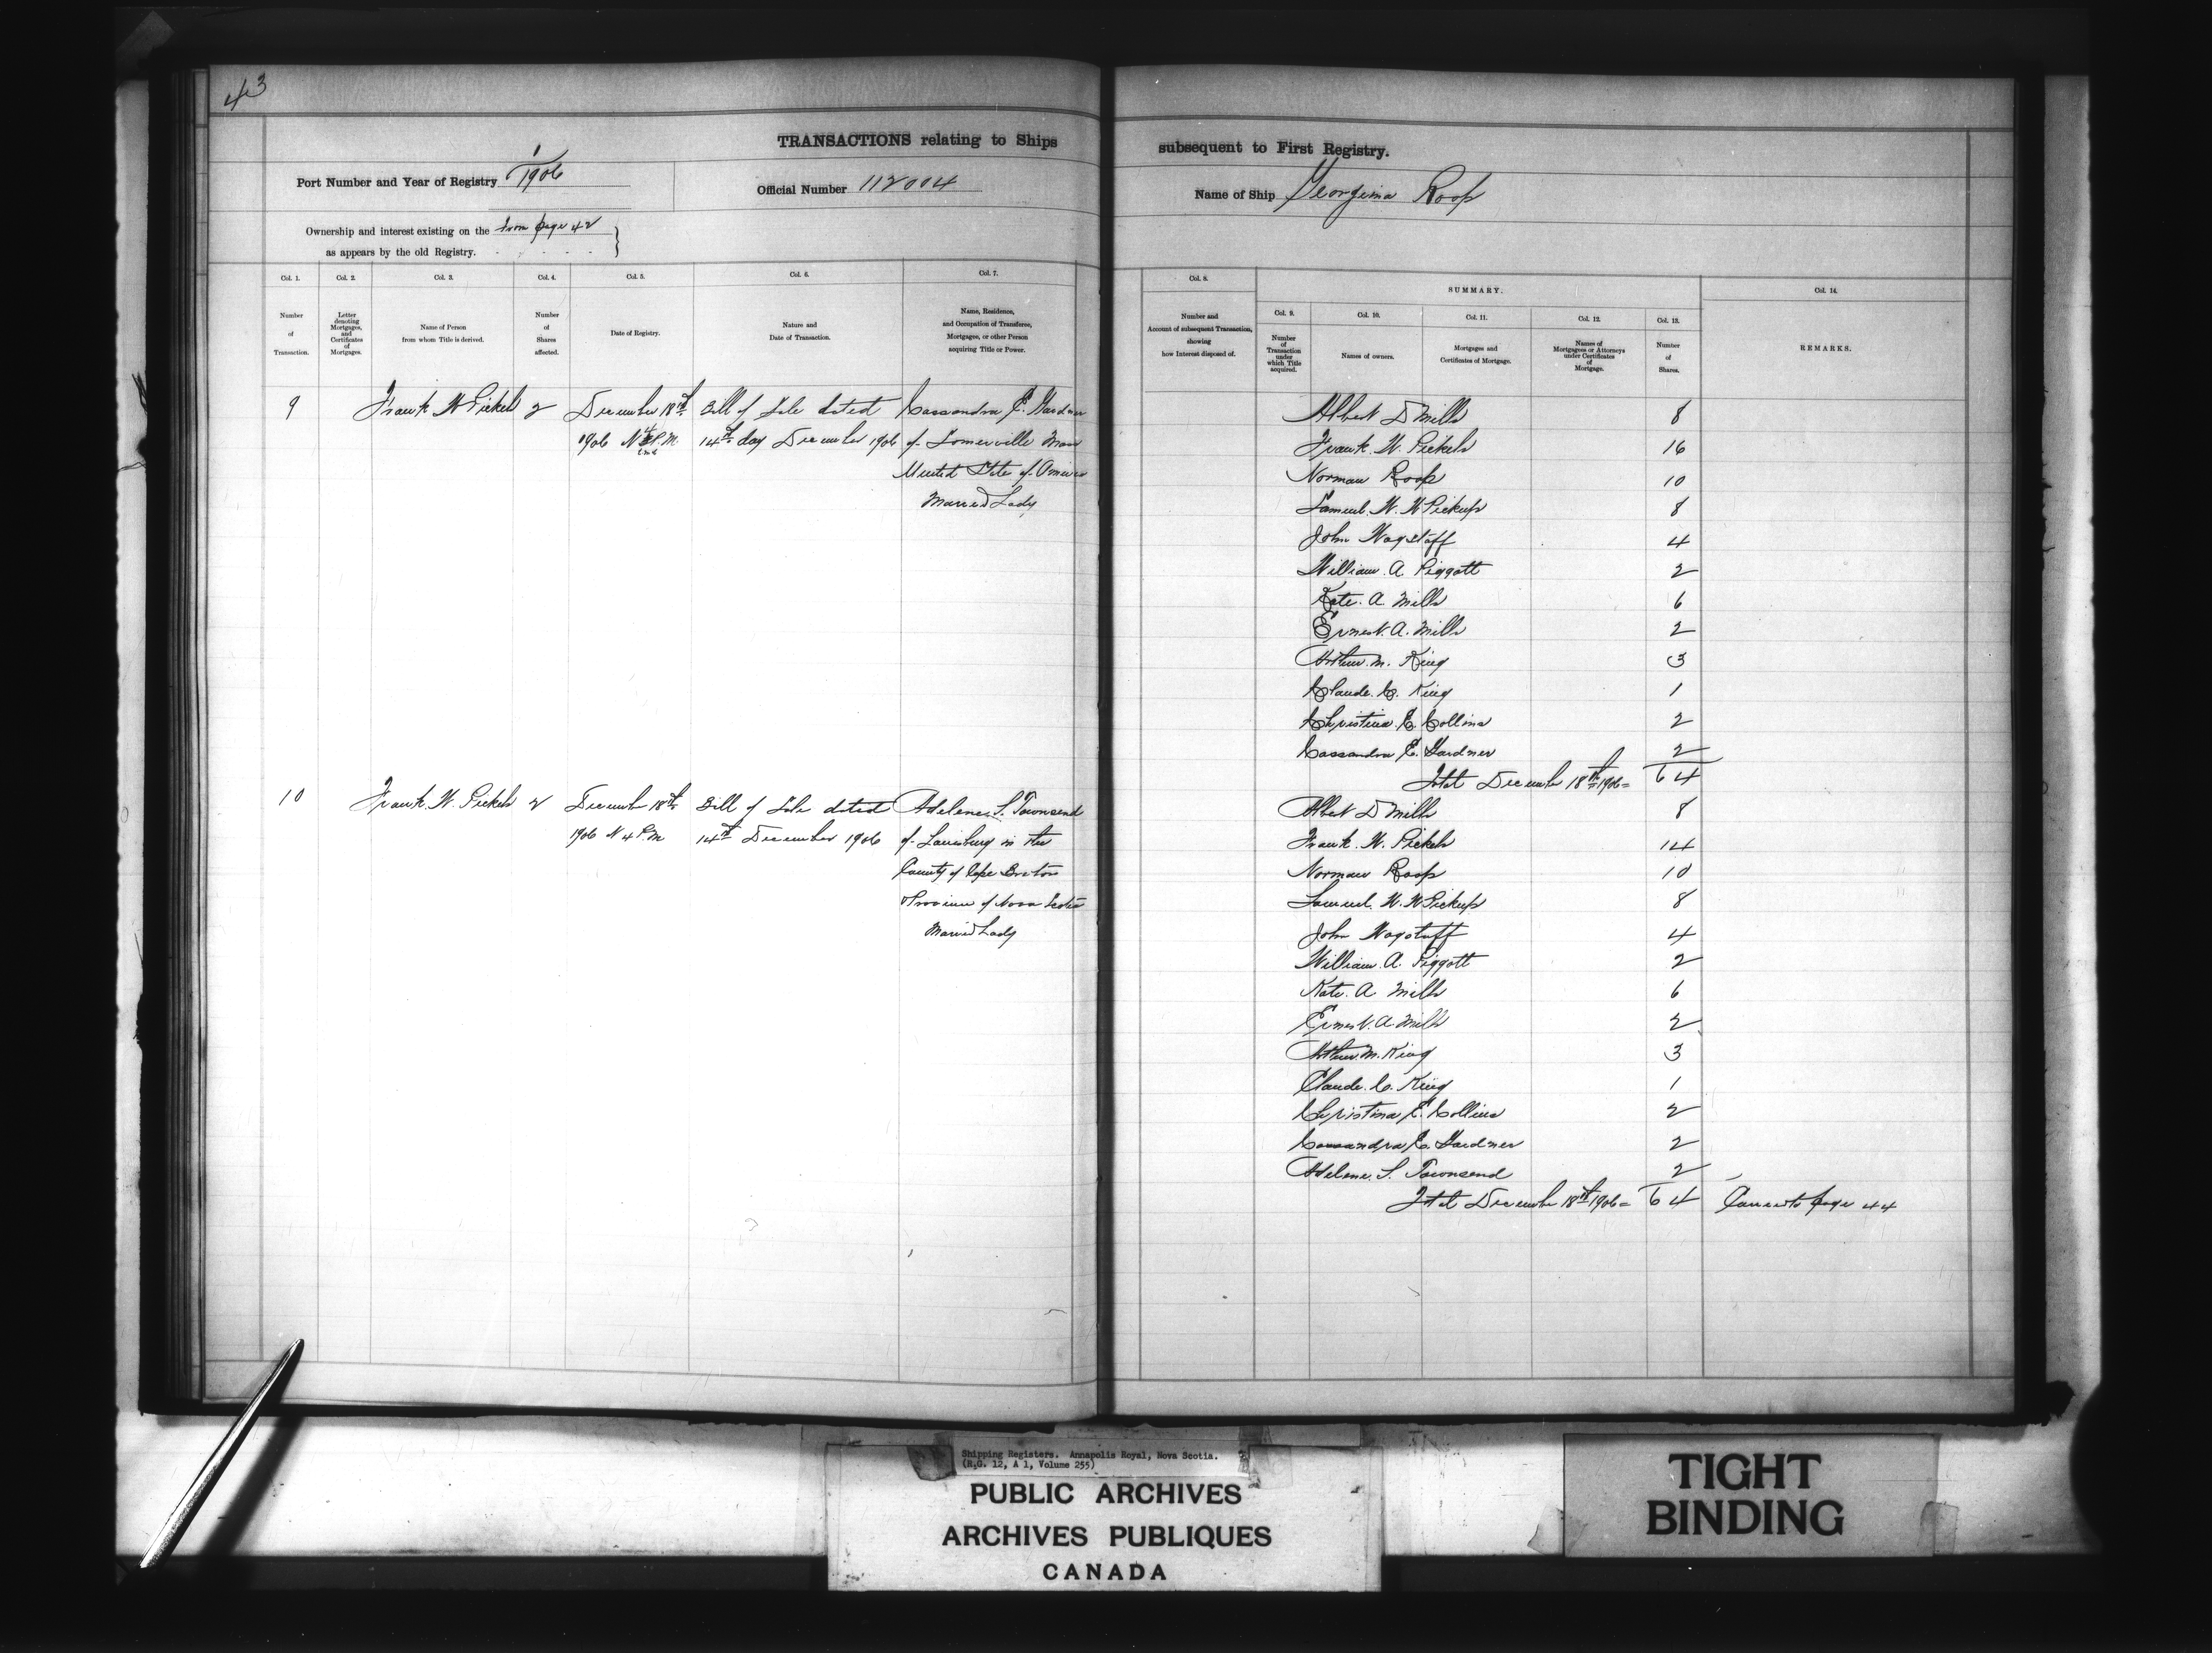 43
TRANSACTIONS relating to Ships subsequent to First Registry.
Port Number and Year of Registry 1/1906
Official Number 112004
Name of Ship Georgina Roop
Ownership and interest existing on the from page 42
as appears by the old Registry.
Col. 1.
Number
of
Transaction.
Col. 2.
Letter
denoting
Mortgages,
and
Certificates
of
Mortgages.
Col. 3.
Name of Person
from whom Title is derived.
Col. 4.
Number
of
Shares
affected.
Col. 5.
Date of Registry.
Col. 6.
Nature and
Date of Transaction.
Col. 7.
Name, Residence,
and Occupation of Transferee,
Mortgagee, or other Person
acquiring Title or Power.
Col. 8.
Number and
Account of subsequent Transaction,
showing
how Interest disposed of.
SUMMARY.
Col. 9.
Number
of
Transaction
under
which Title
acquired.
Col. 10.
Names of owners.
Col. 11.
Mortgages and
Certificates of Mortgage.
Col. 12.
Names of
Mortgagees or Attorneys
under Certificates
of
Mortgage.
Col. 13.
Number
of
Shares.
Col. 14.
REMARKS.
9 Frank W Pickels 2 December 18th Bill of Sale dated Cassandra E. Gardner
1906 4 P.M 14th day December 1906 of Somerville Mass
United State of America
Married Lady
Albert D Mills 8
Frank. W. Pickels 16
Norman Roop 10
Samuel. W. W Pickup 8
John Wagstaff 4
William. A. Piggott 2
Kate. A. Mills 6
Ernest. A. Mills 2
Arthur. M. King 3
Claude. C. King 1
Christina. E. Collins 2
Cassandra E. Gardner 2
Total December 18th 1906= 64
10 Frank. W. Pickels 2 December 18th Bill of Sale dated Adelene. S. Townsend
1906 4 P.M 14th December 1906 of Louisburg in the
County of Cape Breton
Province of Nova Scotia
Married Lady
Albert D Mills 8
Frank. W. Pickels 14
Norman Roop 10
Samuel. W. W Pickup 8
John Wagstaff 4
William. A. Piggott 2
Kate. A Mills 6
Ernest. A. Mills 2
Arthur. M. King 3
Claude. C. King 1
Christina E. Collins 2
Cassandra E. Gardner 2
Adelene. S. Townsend 2
Total December 18th 1906= 64 page 44
Shipping Registers. Annapolis Royal, Nova Scotia.
(R.G. 12, A 1, Volume 255)
PUBLIC ARCHIVES
ARCHIVES PUBLIQUES
CANADA
TIGHT
BINDING